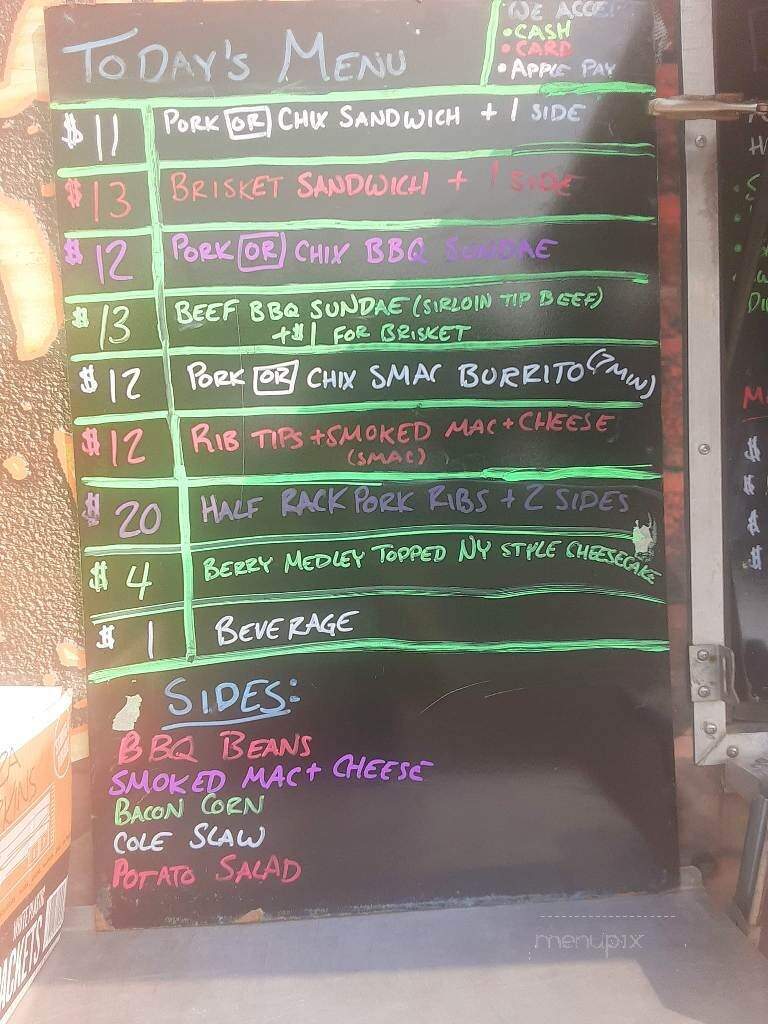 TODAY'S MENU
WE ACCE
• CASH
• CARD
• APPLE PAY
$11 PORK OR CHIX SANDWICH + 1 SIDE
$13 BRISKET SANDWICH + 1 SIDE
$12 PORK OR CHIX BBQ SUNDAE
$13 BEEF BBQ SUNDAE (SIRLOIN TIP BEEF)
+$1 FOR BRISKET
$12 PORK OR CHIX SMAC BURRITO (7 MIN)
$12 RIB TIPS + SMOKED MAC + CHEESE
(SMAC)
$20 HALF RACK PORK RIBS + 2 SIDES
$4 BERRY MEDLEY TOPPED NY STYLE CHEESECAKE
$1 BEVERAGE
SIDES:
BBQ BEANS
SMOKED MAC + CHEESE
BACON CORN
COLE SLAW
POTATO SALAD
WHITE PLASTIC
menupix